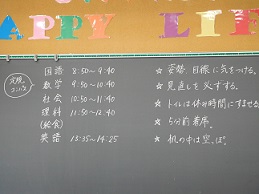 APPY LIF
国語 8:50～9:40
数学 9:50～10:40
社会 10:50～11:40
理科 11:50～12:40
(給食)
英語 13:35～14:25
☆ 姿勢、目線に気をつける。
☆ 見直しを必ずする。
☆ トイレは休み時間にすませる。
☆ 5分前着席。
☆ 机の中は空っぽ。